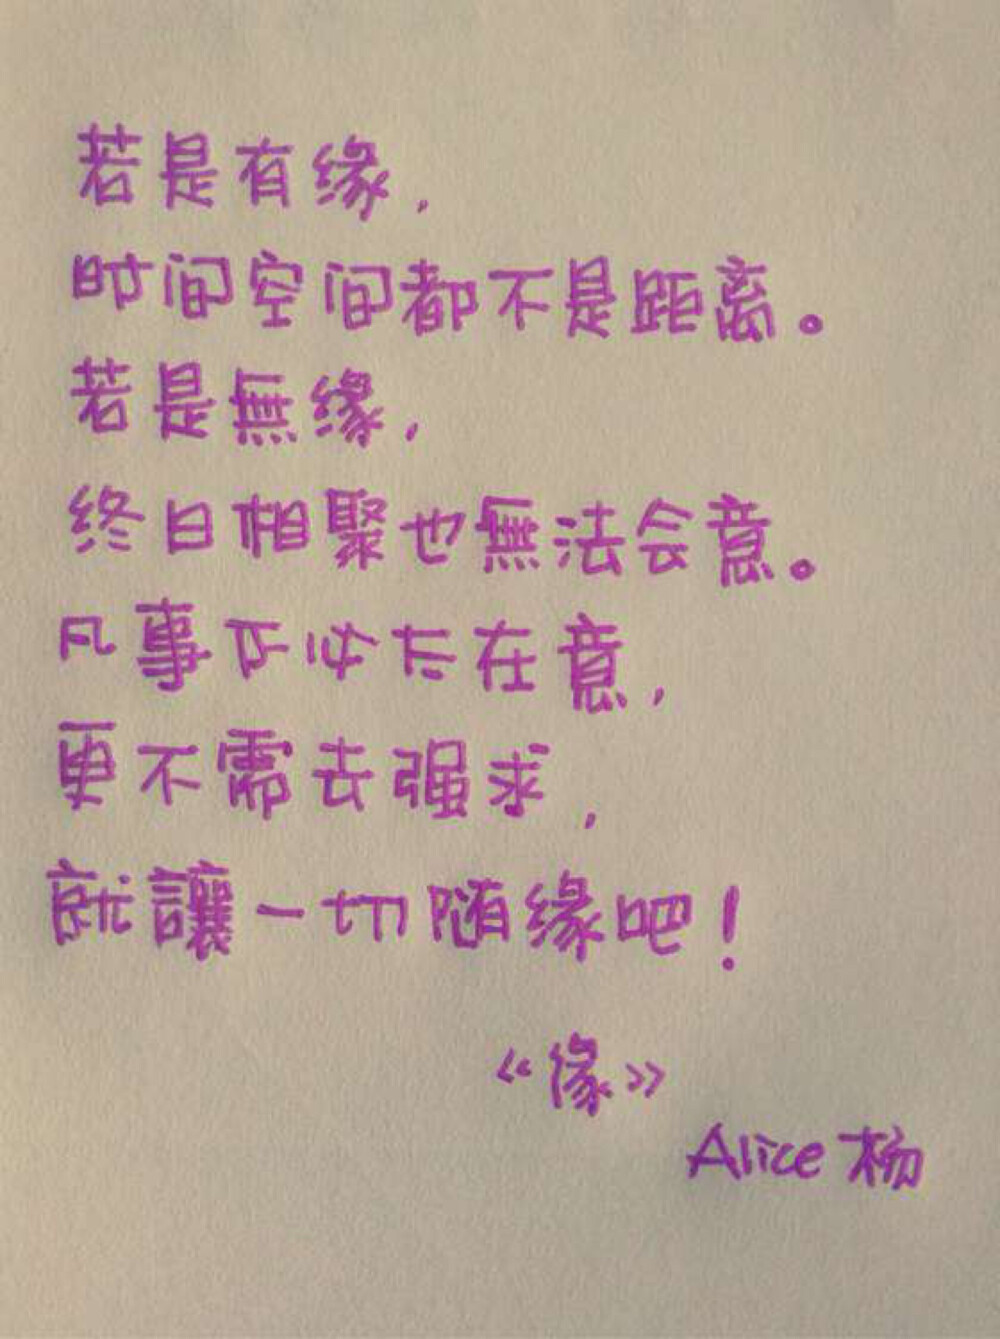 若是有缘，
时间空间都不是距离。
若是無缘，
终日相聚也無法会意。
凡事不必太在意，
更不需去强求，
就讓一切随缘吧！
《缘》
Alice 杨